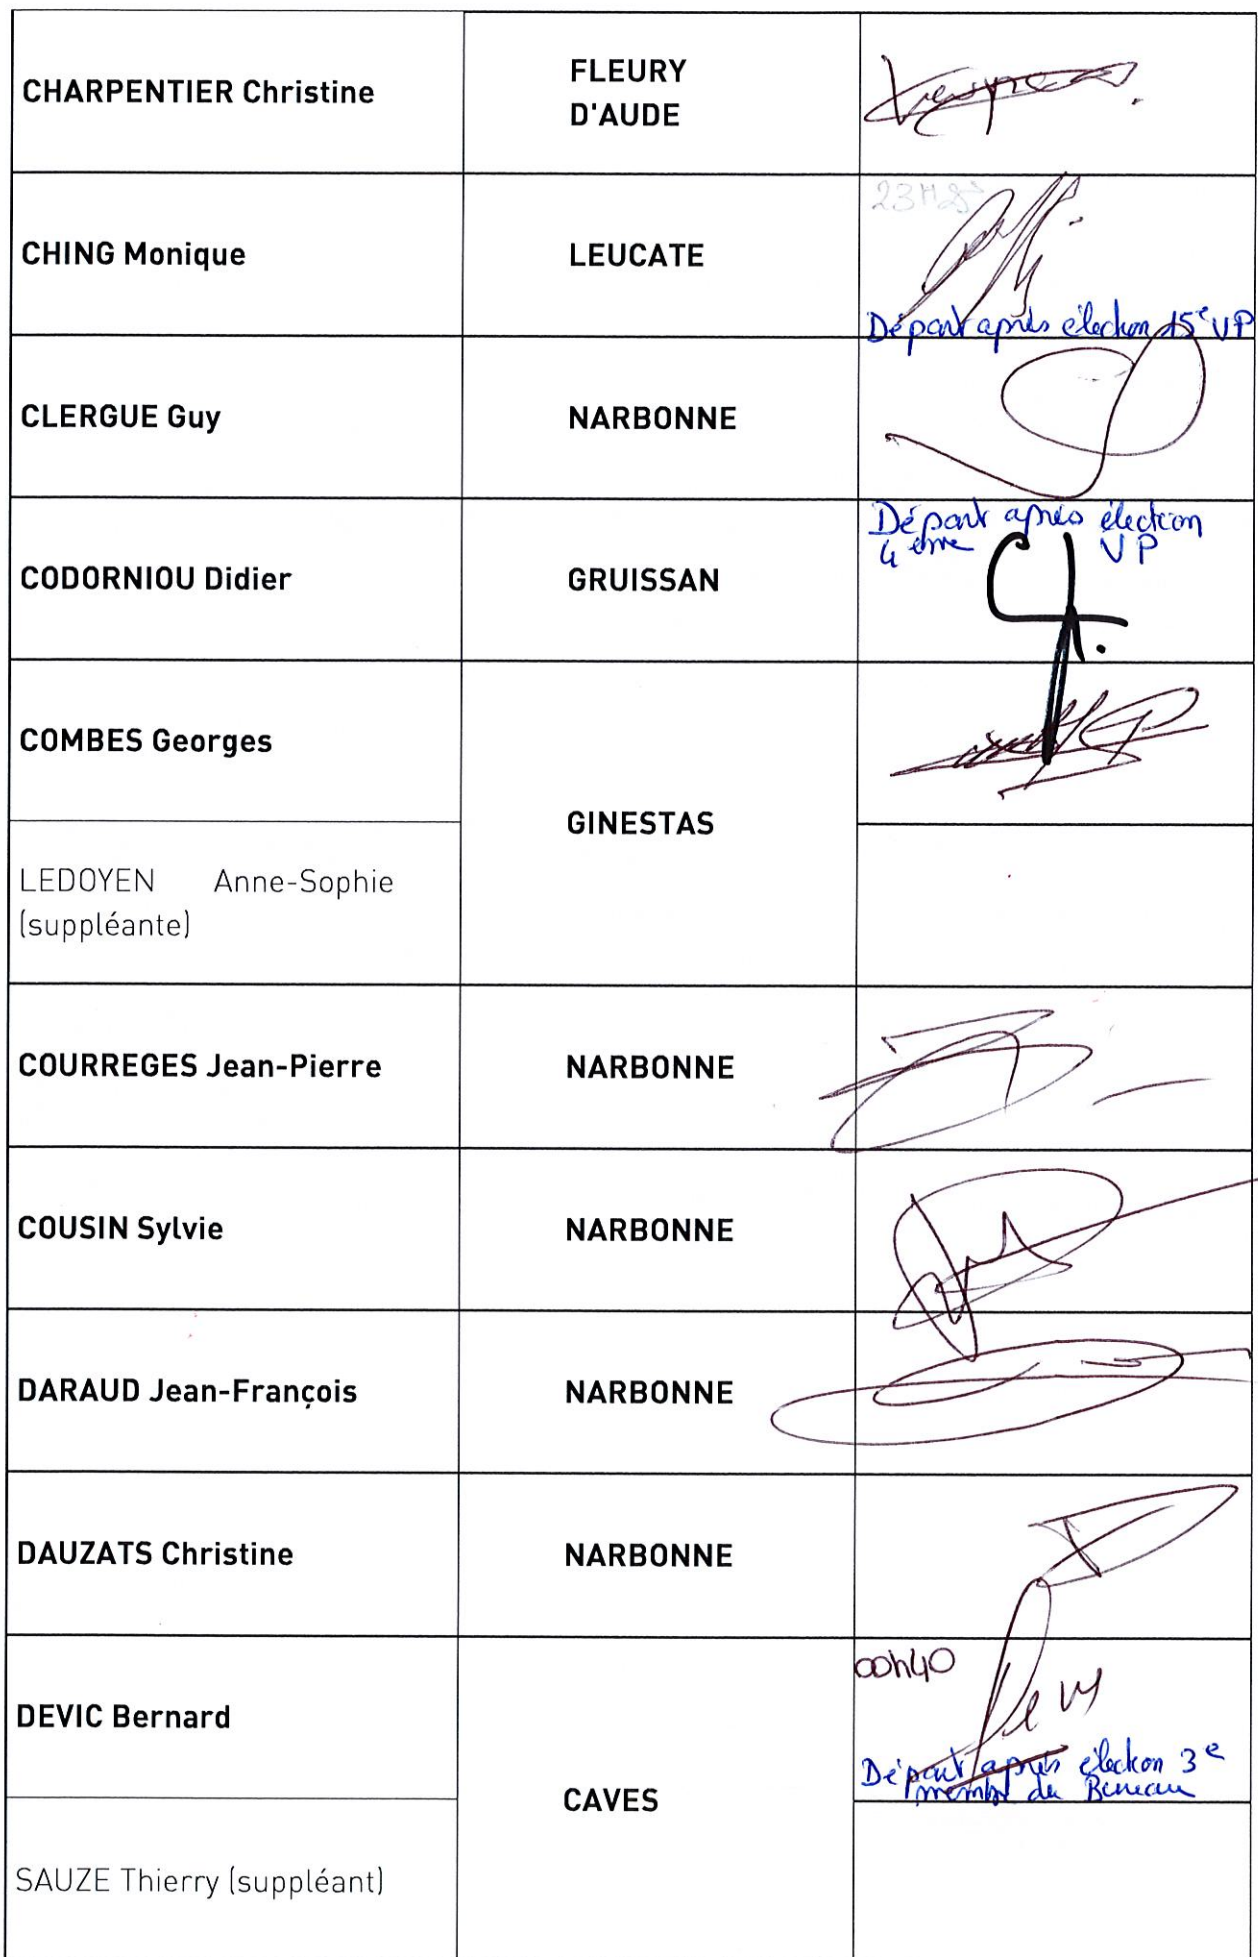 CHARPENTIER Christine
FLEURY
D'AUDE
CHING Monique
LEUCATE
Départ après élection 15e VP
CLERGUE Guy
NARBONNE
CODORNIOU Didier
GRUISSAN
Départ après élection
4ème VP
COMBES Georges
GINESTAS
LEDOYEN Anne-Sophie
(suppléante)
COURREGES Jean-Pierre
NARBONNE
COUSIN Sylvie
NARBONNE
DARAUD Jean-François
NARBONNE
DAUZATS Christine
NARBONNE
DEVIC Bernard
CAVES
00h40
Départ après élection 3e
membre du Bureau
SAUZE Thierry (suppléant)